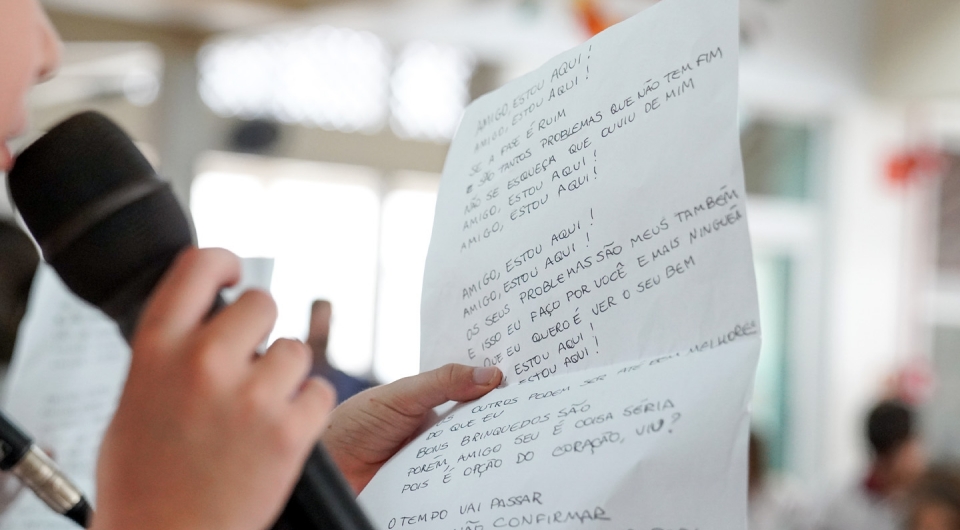 AMIGO, ESTOU AQUI!
AMIGO, ESTOU AQUI!
SE A FASE É RUIM
E SÃO TANTOS PROBLEMAS QUE NÃO TEM FIM
NÃO SE ESQUEÇA QUE OUVIU DE MIM
AMIGO, ESTOU AQUI!
AMIGO, ESTOU AQUI!
AMIGO, ESTOU AQUI!
AMIGO, ESTOU AQUI!
OS SEUS PROBLEMAS SÃO MEUS TAMBÉM
E ISSO EU FAÇO POR VOCÊ E MAIS NINGUÉM
QUE EU QUERO É VER O SEU BEM
ESTOU AQUI!
ESTOU AQUI!
OUTROS PODEM SER ATÉ BEM MELHORES
DO QUE EU
BONS BRINQUEDOS SÃO
PORÉM, AMIGO SEU É COISA SÉRIA
POIS É OPÇÃO DO CORAÇÃO, VIU?
O TEMPO VAI PASSAR
NÃO CONFIRMAR